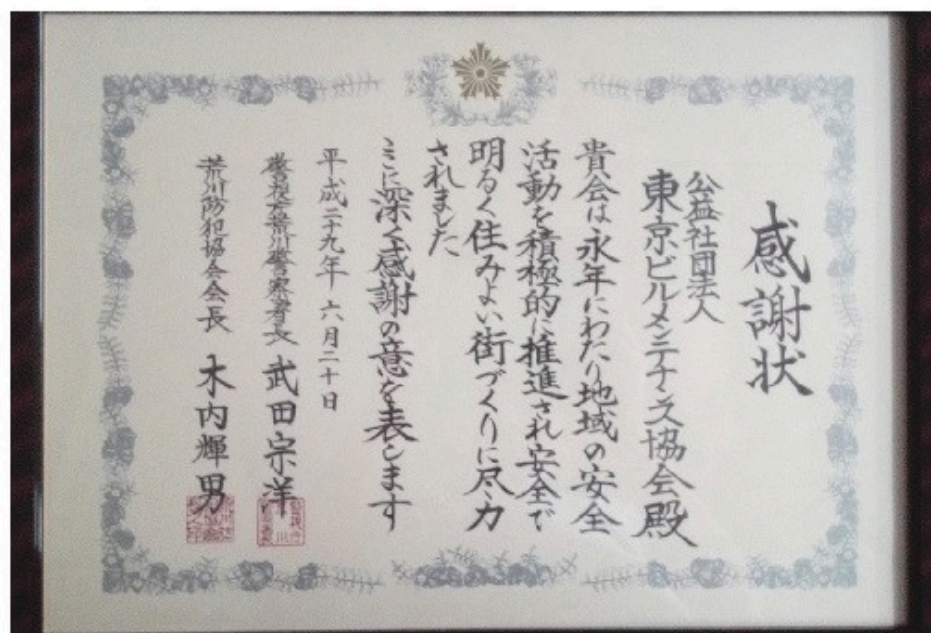 感謝状
公益社団法人
東京ビルメンテナンス協会殿
貴会は永年にわたり地域の安全
活動を積極的に推進され安全で
明るく住みよい街づくりに尽力
されました
ここに深く感謝の意を表します
平成二十九年 六月二十日
警視庁荒川警察署長 武田宗洋
荒川防犯協会会長 木内輝男